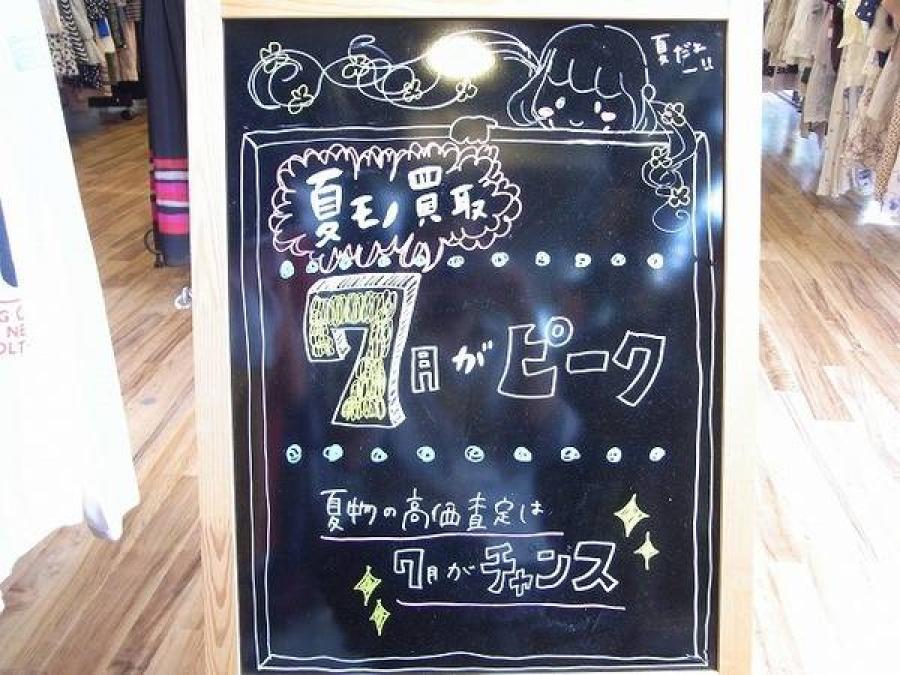 夏だよ
ー!!
夏モノ買取
7月がピーク
夏物の高価査定は
7月がチャンス